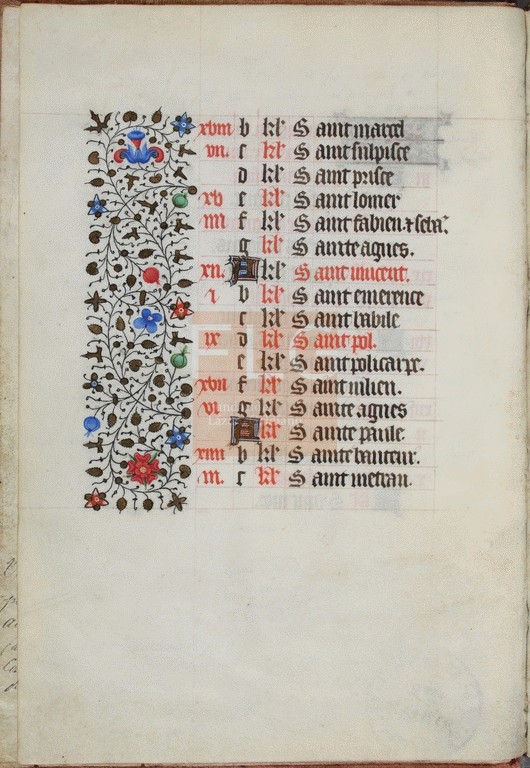 xviii b kl' Saint marcel
vii. c kl' Saint sulpisce
d kl' Saint prisce
xv e kl' Saint lomer
iiii f kl' Saint fabien. &
g kl' Sainte agnes.
xii. A kl' Saint vincent.
i b kl' Saint emerence
c kl' Saint babile
ix d kl' Saint pol.
e kl' Saint policarpe.
xvii f kl' Saint iulien.
vi g kl' Sainte agnes
A kl' Sainte paule.
xiiii b kl' Sainte
iii. c kl' Saint metran.